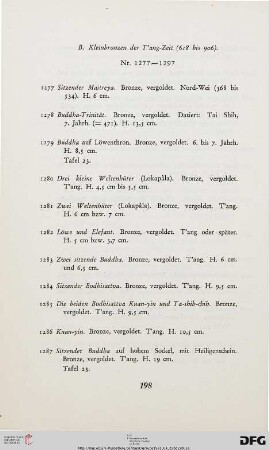 B. Kleinbronzen der T'ang-Zeit (618 bis 906).
Nr. 1277—1297
1277 Sitzender Maitreya. Bronze, vergoldet. Nord-Wei (368 bis
534). H. 6 cm.
1278 Buddha-Trinität. Bronze, vergoldet. Datiert: Tai Shih,
7. Jahrh. (= 471). H. 13,5 cm.
1279 Buddha auf Löwenthron. Bronze, vergoldet. 6. bis 7. Jahrh.
H. 8,5 cm.
Tafel 23.
1280 Drei kleine Weltenhüter (Lokapâla). Bronze, vergoldet.
T'ang. H. 4,5 cm bis 5,5 cm.
1281 Zwei Weltenhüter (Lokapâla). Bronze, vergoldet. T'ang.
H. 6 cm bzw. 7 cm.
1282 Löwe und Elefant. Bronze, vergoldet. T'ang oder später.
H. 5 cm bzw. 3,7 cm.
1283 Zwei sitzende Buddha. Bronze, vergoldet. T'ang. H. 6 cm
und 6,5 cm.
1284 Sitzender Bodhisattva. Bronze, vergoldet. T'ang. H. 9,5 cm.
1285 Die beiden Bodhisattva Kuan-yin und Ta-shih-chih. Bronze,
vergoldet. T'ang. H. 9,5 cm.
1286 Kuan-yin. Bronze, vergoldet. T'ang. H. 10,5 cm.
1287 Sitzender Buddha auf hohem Sockel, mit Heiligenschein.
Bronze, vergoldet. T'ang. H. 19 cm.
Tafel 23.
198
DFG